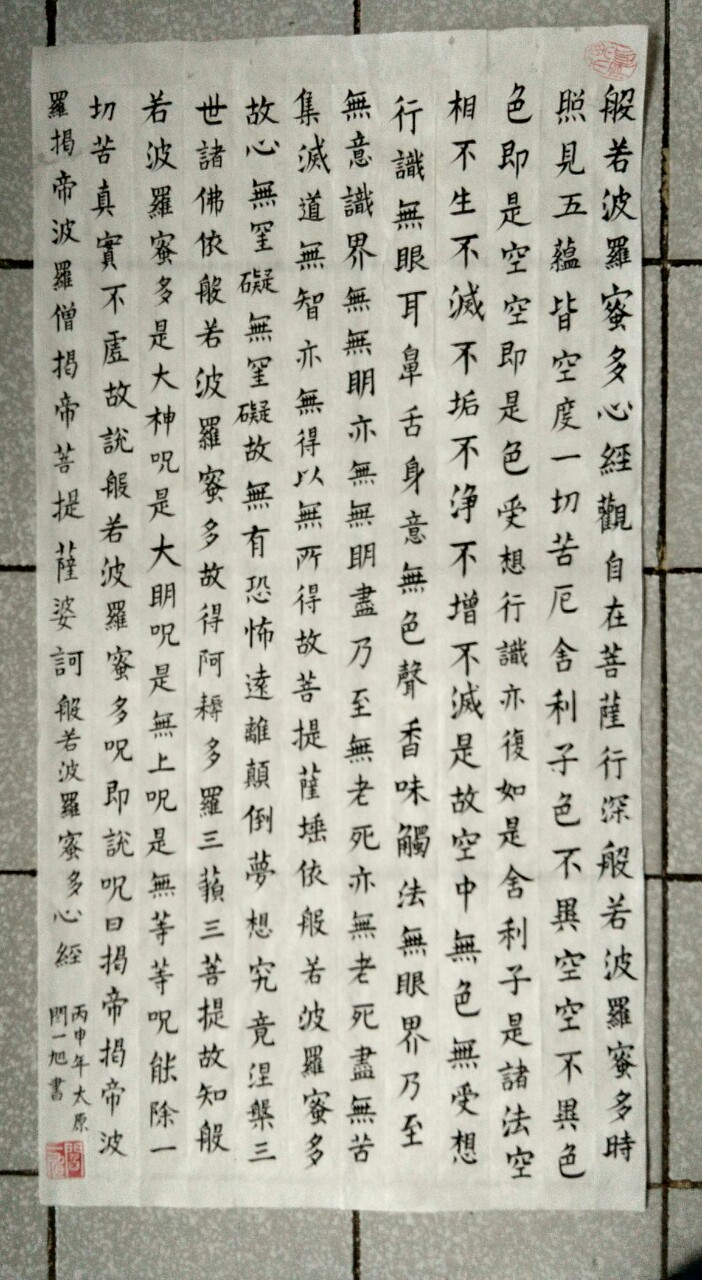 般若波羅蜜多心經觀自在菩薩行深般若波羅蜜多時
照見五蘊皆空度一切苦厄舍利子色不異空空不異色
色即是空空即是色受想行識亦復如是舍利子是諸法空
相不生不滅不垢不淨不增不滅是故空中無色無受想
行識無眼耳鼻舌身意無色聲香味觸法無眼界乃至
無意識界無無明亦無無明盡乃至無老死亦無老死盡無苦
集滅道無智亦無得以無所得故菩提薩埵依般若波羅蜜多
故心無罣礙無罣礙故無有恐怖遠離顛倒夢想究竟涅槃三
世諸佛依般若波羅蜜多故得阿耨多羅三藐三菩提故知般
若波羅蜜多是大神呪是大明呪是無上呪是無等等呪能除一
切苦真實不虛故說般若波羅蜜多呪即說呪曰揭帝揭帝波
羅揭帝波羅僧揭帝菩提薩婆訶般若波羅蜜多心經
丙申年太原
閆一旭書